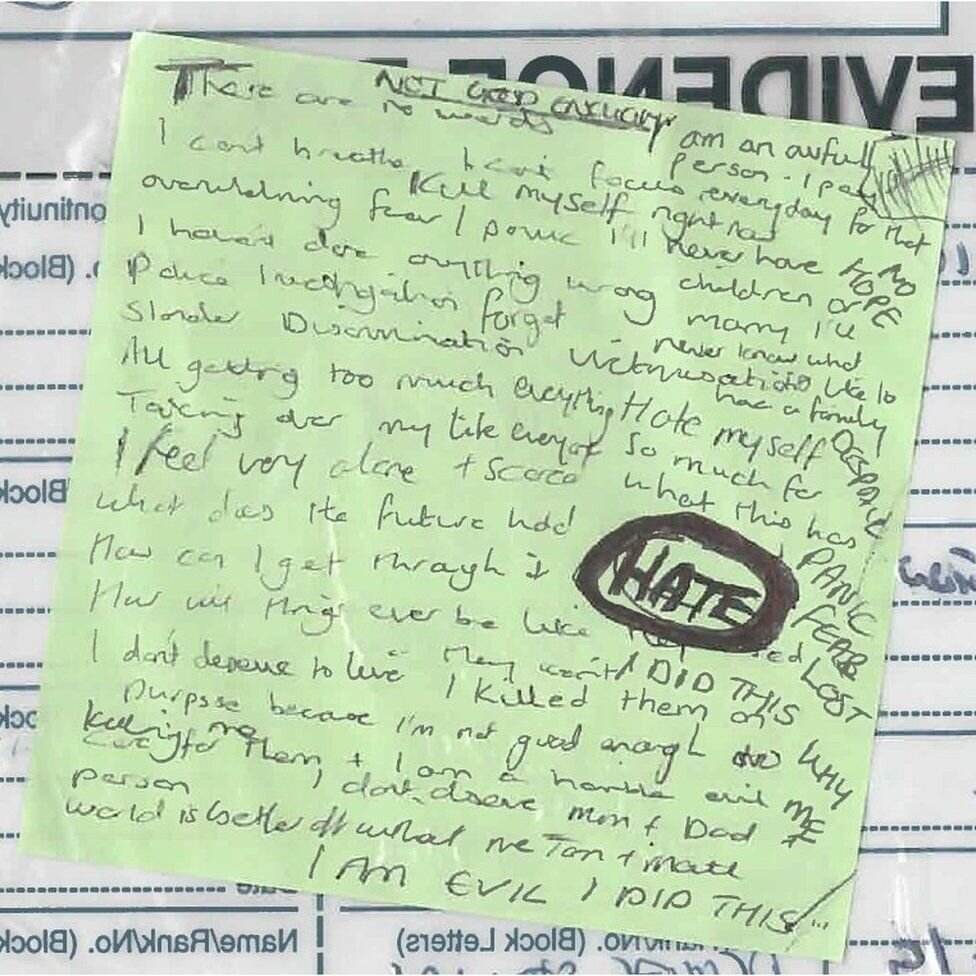 EVIDENCE
NOT GOOD ENOUGH
There are no words
am an awful person . I pay
I cant breathe I cant focus everyday for that
Kill myself right now
overwhelming fear / panic I'll never have
NO HOPE
I haven't done anything wrong children or marry I'll
Police investigation forget never know what
Slander Discrimination Victimisation like to have a family
All getting too much everything Hate myself
DESPAIR
Taking over my life so much for
I feel very alone + scared what this has
What does the future hold
PANIC
How can I get through it
HATE
FEAR
How will things ever be like they
LOST
they won't I DID THIS
I don't deserve to live I killed them on
WHY ME
purpose because I'm not good enough to
killing me
care for them + I am a horrible evil
person I don't deserve mum + Dad
world is better off without me Tom + matt
I AM EVIL I DID THIS
Name/Rank/No. (Block
/Rank/No. (Block Letters)